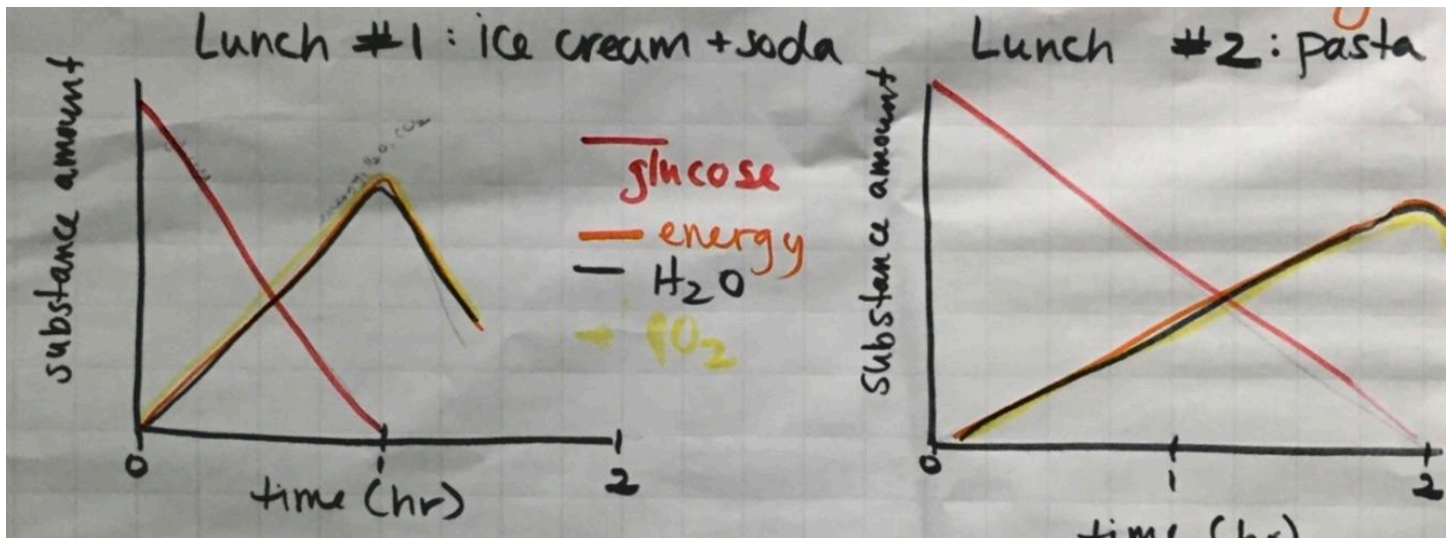 Lunch #1: ice cream + soda
substance amount
glucose
energy
H₂O
CO₂
0
1
2
time (hr)
Lunch #2: pasta
substance amount
0
1
2
time (hr)